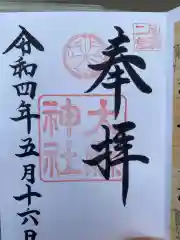 奉拝
令和四年五月十六日
神社